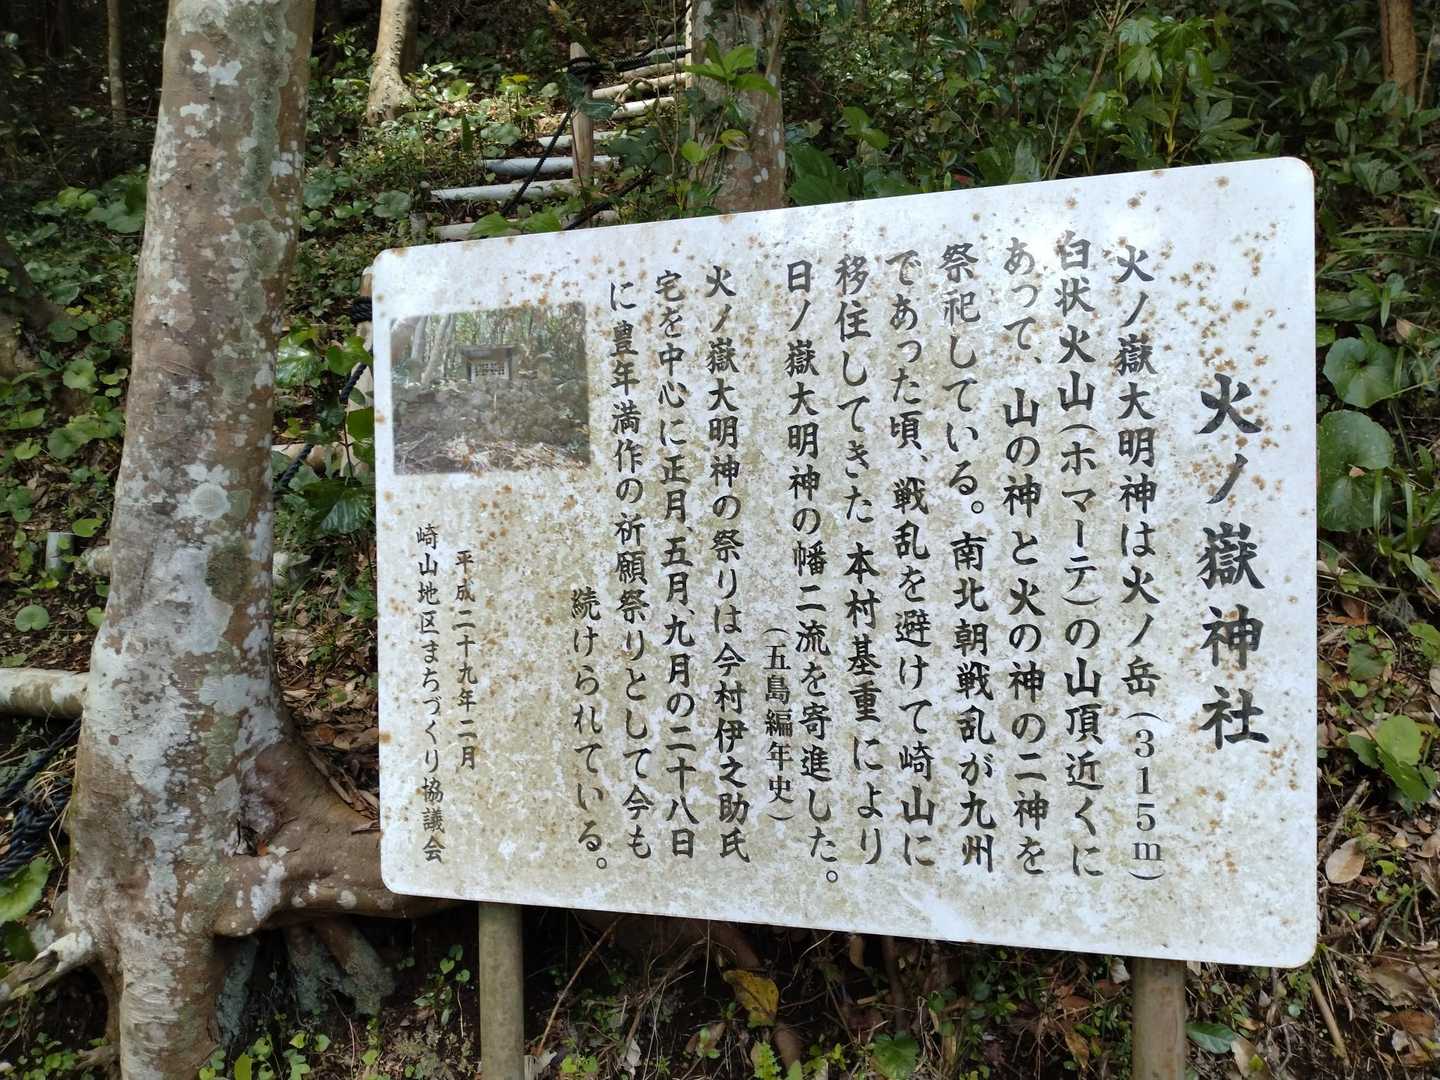 火ノ嶽神社
火ノ嶽大明神は火ノ岳(315m)
臼状火山(ホマーテ)の山頂近くに
あって、山の神と火の神の二神を
祭祀している。南北朝戦乱が九州
であった頃、戦乱を避けて崎山に
移住してきた本村基重により
日ノ嶽大明神の幡二流を寄進した。
(五島編年史)
火ノ嶽大明神の祭りは今村伊之助氏
宅を中心に正月、五月、九月の二十八日
に豊年満作の祈願祭りとして今も
続けられている。
平成二十九年二月
崎山地区まちづくり協議会